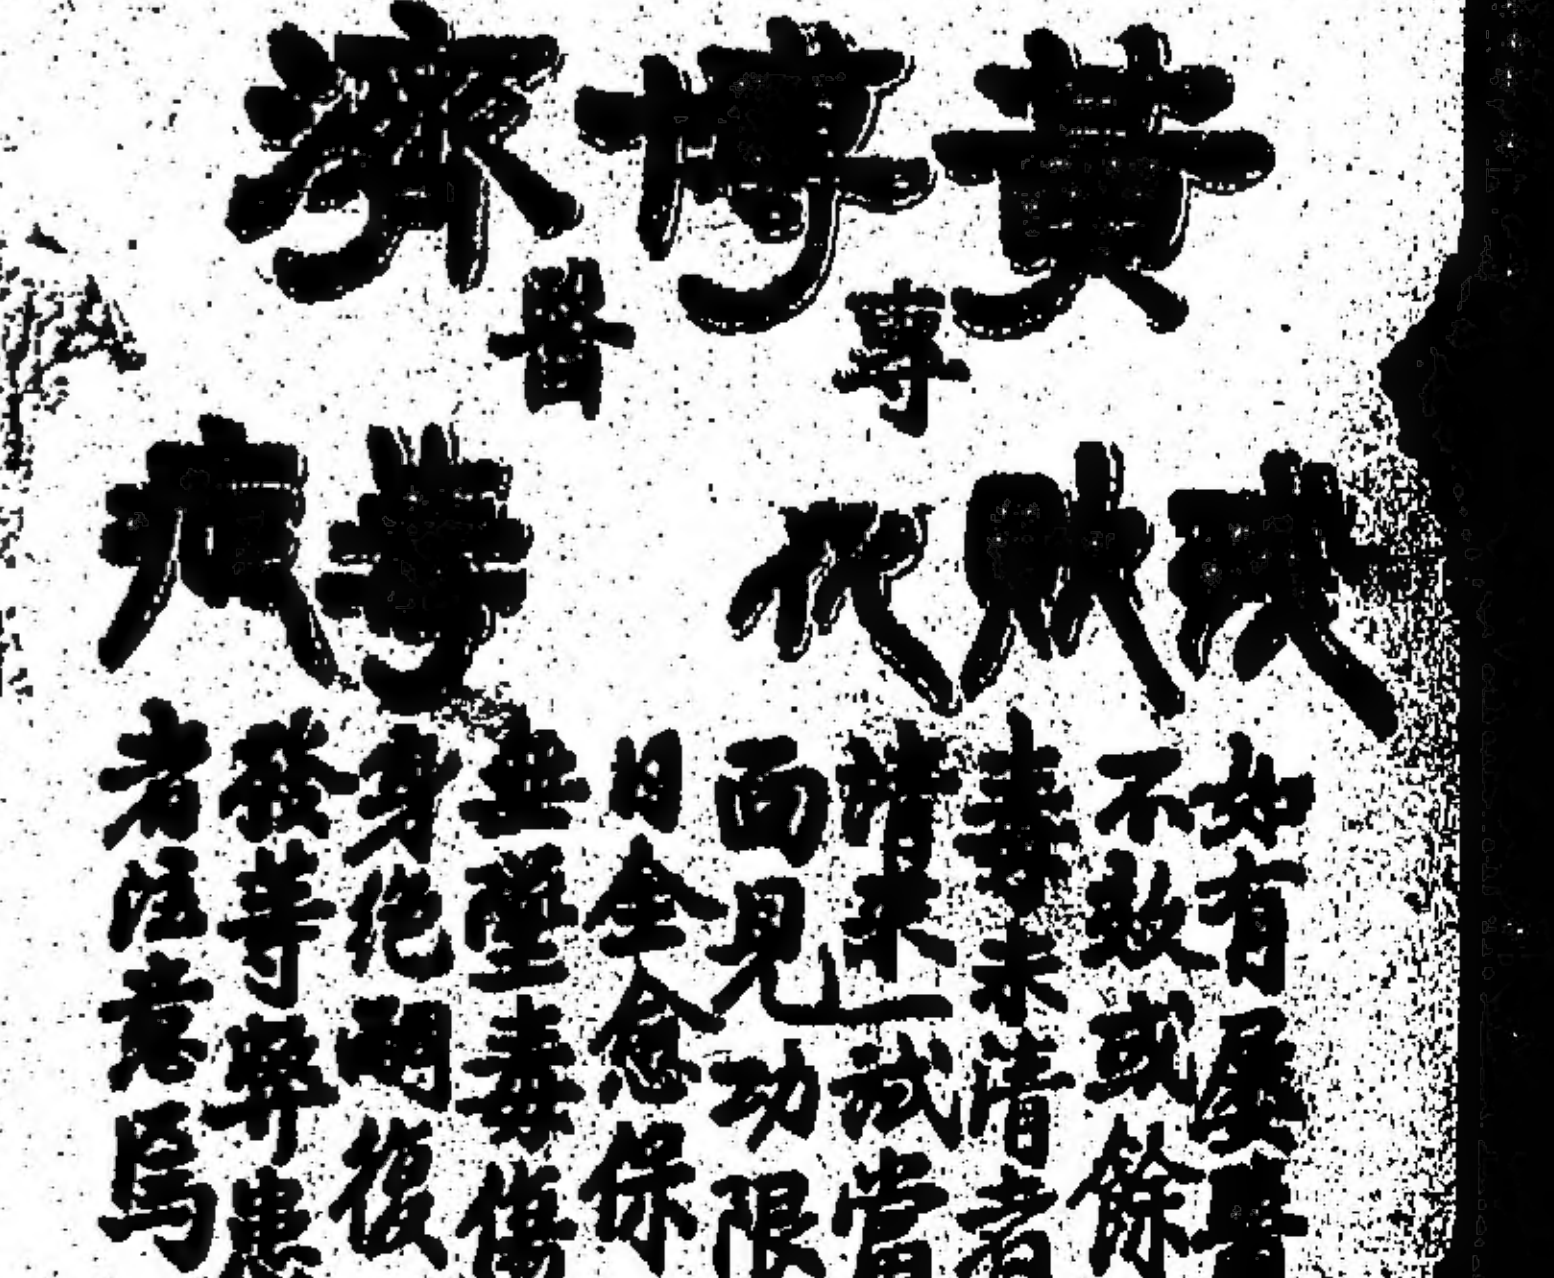 黃博濟
專醫
如有屢醫
不效或餘
毒未清者
請來一試當
面見功限
日全愈保
無毒傷
身絕嗣復
發等弊患
者注意焉